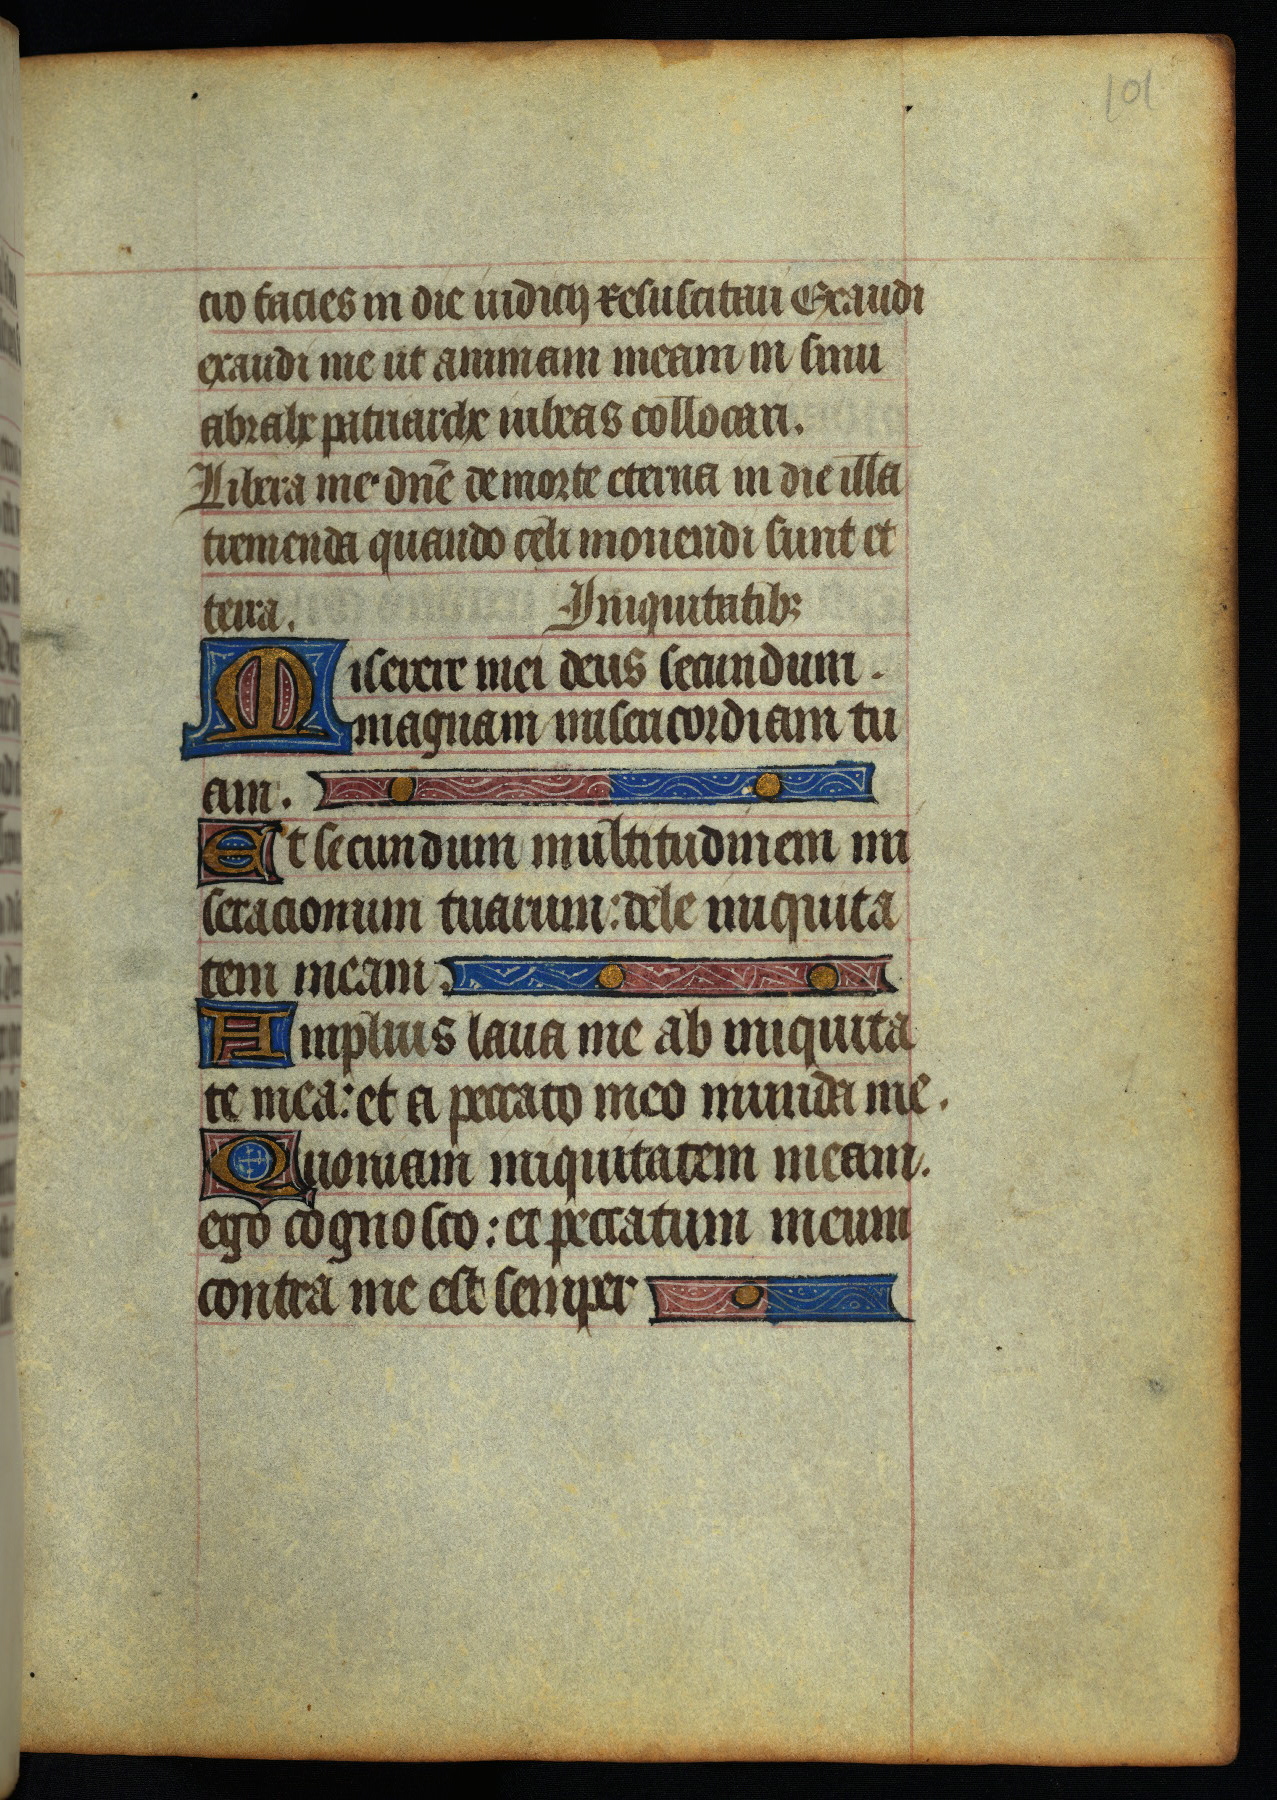 101
cio facies in die iudicij resuscitari Exaudi
exaudi me ut animam meam in sinu
abrahe patriarche iubeas collocari.
Libera me dn̄e de morte eterna in die illa
tremenda quando celi mouendi sunt et
terra. Iniquitatib;
Miserere mei deus secundum.
magnam misericordiam tu
am.
Et secundum multitudinem mi
seracionum tuarum: dele iniquita
tem meam.
Amplius laua me ab iniquita
te mea: et a peccato meo munda me.
Quoniam iniquitatem meam.
ego cognosco: et peccatum meum
contra me est semper